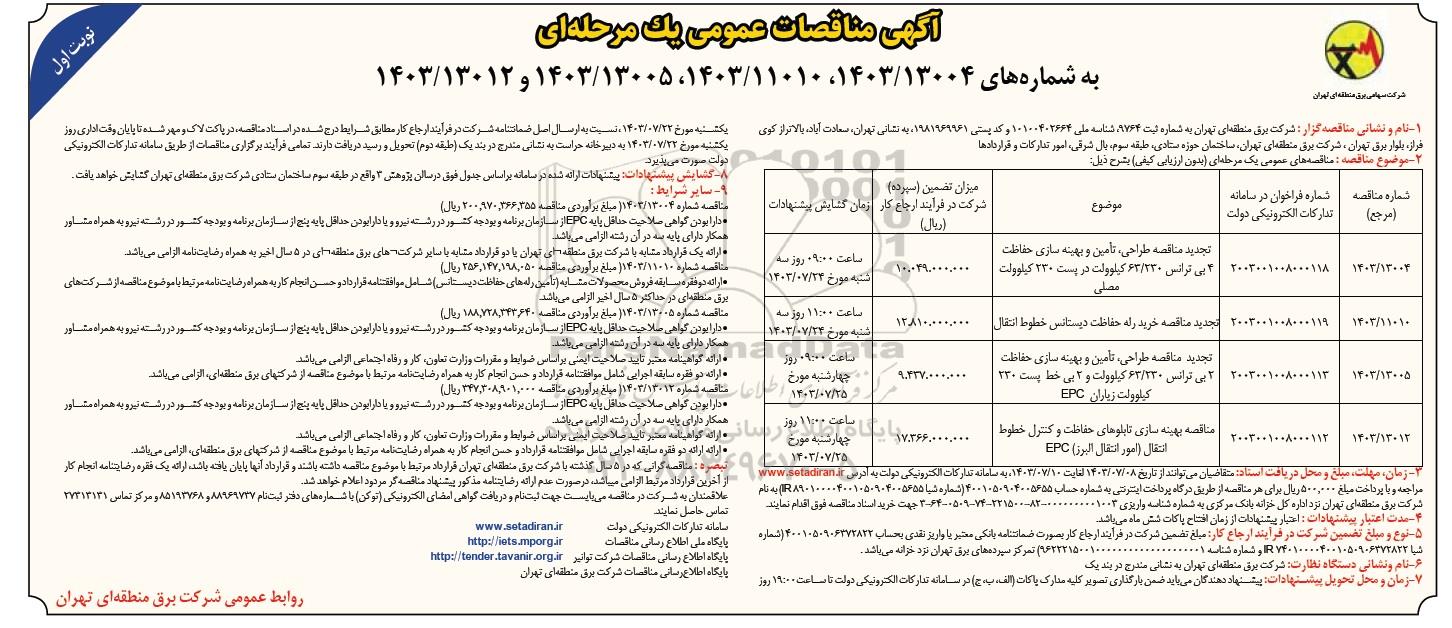 آگهی مناقصات عمومی یك مرحله‌ای
به شماره‌های ۱۴۰۳/۱۳۰۰۴، ۱۴۰۳/۱۱۰۱۰، ۱۴۰۳/۱۳۰۰۵ و ۱۴۰۳/۱۳۰۱۲
نوبت اول
شرکت سهامی برق منطقه‌ای تهران
۱-نام و نشانی مناقصه‌گزار : شرکت برق منطقه‌ای تهران به شماره ثبت ۹۷۶۴، شناسه ملی ۱۰۱۰۰۴۰۲۶۶۴ و کد پستی ۱۹۸۱۹۶۹۹۶۱، به نشانی تهران، سعادت آباد، بالاتراز کوی
فراز، بلوار برق تهران ، شرکت برق منطقه‌ای تهران، ساختمان حوزه ستادی، طبقه سوم، بال شرقی، امور تدارکات و قراردادها
۲-موضوع مناقصه : مناقصه‌های عمومی یک مرحله‌ای (بدون ارزیابی کیفی) بشرح ذیل:
شماره مناقصه (مرجع) | شماره فراخوان در سامانه تدارکات الکترونیکی دولت | موضوع | میزان تضمین (سپرده) شرکت در فرآیند ارجاع کار (ریال) | زمان گشایش پیشنهادات
۱۴۰۳/۱۳۰۰۴ | ۲۰۰۳۰۰۱۰۰۸۰۰۰۱۱۸ | تجدید مناقصه طراحی، تأمین و بهینه سازی حفاظت ۴ بی ترانس ۶۳/۲۳۰ کیلوولت در پست ۲۳۰ کیلوولت مصلی | ۱۰.۰۴۹.۰۰۰.۰۰۰ | ساعت ۰۹:۰۰ روز سه شنبه مورخ ۱۴۰۳/۰۷/۲۴
۱۴۰۳/۱۱۰۱۰ | ۲۰۰۳۰۰۱۰۰۸۰۰۰۱۱۹ | تجدید مناقصه خرید رله حفاظت دیستانس خطوط انتقال | ۱۲.۸۱۰.۰۰۰.۰۰۰ | ساعت ۱۱:۰۰ روز سه شنبه مورخ ۱۴۰۳/۰۷/۲۴
۱۴۰۳/۱۳۰۰۵ | ۲۰۰۳۰۰۱۰۰۸۰۰۰۱۱۳ | تجدید مناقصه طراحی، تأمین و بهینه سازی حفاظت ۲ بی ترانس ۶۳/۲۳۰ کیلوولت و ۲ بی خط پست ۲۳۰ کیلوولت زیاران EPC | ۹.۴۳۷.۰۰۰.۰۰۰ | ساعت ۰۹:۰۰ روز چهارشنبه مورخ ۱۴۰۳/۰۷/۲۵
۱۴۰۳/۱۳۰۱۲ | ۲۰۰۳۰۰۱۰۰۸۰۰۰۱۱۲ | مناقصه بهینه سازی تابلوهای حفاظت و کنترل خطوط انتقال (امور انتقال البرز) EPC | ۱۷.۳۶۶.۰۰۰.۰۰۰ | ساعت ۱۱:۰۰ روز چهارشنبه مورخ ۱۴۰۳/۰۷/۲۵
۳-زمان، مهلت، مبلغ و محل دریافت اسناد: متقاضیان می‌توانند از تاریخ ۱۴۰۳/۰۷/۰۸ لغایت ۱۴۰۳/۰۷/۱۰، به سامانه تدارکات الکترونیکی دولت به آدرس www.setadiran.ir
مراجعه و با پرداخت مبلغ ۵۰۰,۰۰۰ ریال برای هر مناقصه از طریق درگاه پرداخت اینترنتی به شماره حساب ۴۰۰۱۰۵۰۹۰۴۰۰۵۶۵۵ (شماره شبا IR ۸۹۰۱۰۰۰۰۴۰۰۱۰۵۰۹۰۴۰۰۵۶۵۵) به نام
شرکت برق منطقه‌ای تهران نزد اداره کل خزانه بانک مرکزی به شماره شناسه واریزی جهت خرید اسناد مناقصه فوق اقدام نمایند.
۴-مدت اعتبار پیشنهادات : اعتبار پیشنهادات از زمان افتتاح پاکات شش ماه می‌باشد.
۵-نوع و مبلغ تضمین شرکت در فرآیند ارجاع کار: مبلغ تضمین شرکت در فرآیند ارجاع کار بصورت ضمانتنامه بانکی معتبر یا واریز نقدی بحساب ۴۰۰۱۰۵۰۹۰۶۳۷۲۸۲۲ (شماره
شبا IR ۷۴۰۱۰۰۰۰۴۰۰۱۰۵۰۹۰۶۳۷۲۸۲۲ و شماره شناسه تمرکز سپرده‌های برق تهران نزد خزانه می‌باشد .
۶-نام ونشانی دستگاه نظارت: شرکت برق منطقه‌ای تهران به نشانی مندرج در بند یک
۷-زمان و محل تحویل پیشنهادات: پیشنهاد دهندگان می‌باید ضمن بارگذاری تصویر کلیه مدارک پاکات (الف، ب، ج) در سامانه تدارکات الکترونیکی دولت تا ساعت ۱۹:۰۰ روز
یکشنبه مورخ ۱۴۰۳/۰۷/۲۲، نسبت به ارسال اصل ضمانتنامه شرکت در فرآیند ارجاع کار مطابق شرایط درج شده در اسناد مناقصه، در پاکت لاک و مهر شده تا پایان وقت اداری روز
یکشنبه مورخ ۱۴۰۳/۰۷/۲۲ به دبیرخانه حراست به نشانی مندرج در بند یک (طبقه دوم) تحویل و رسید دریافت دارند. تمامی فرآیند برگزاری مناقصات از طریق سامانه تدارکات الکترونیکی
دولت صورت می‌پذیرد.
۸-گشایش پیشنهادات: پیشنهادات ارائه شده در سامانه براساس جدول فوق درسالن پژوهش ۳ واقع در طبقه سوم ساختمان ستادی شرکت برق منطقه‌ای تهران گشایش خواهد یافت .
۹- سایر شرایط :
مناقصه شماره ۱۴۰۳/۱۳۰۰۴( مبلغ برآوردی مناقصه ۲۰۰,۹۷۰,۳۶۶,۳۵۵ ریال)
●دارا بودن گواهی صلاحیت حداقل پایه EPCاز سازمان برنامه و بودجه کشور در رشته نیرو و یا دارا بودن حداقل پایه پنج از سازمان برنامه و بودجه کشور در رشته نیرو به همراه مشاور
همکار دارای پایه سه در آن رشته الزامی می‌باشد.
●ارائه یک قرارداد مشابه با شرکت برق منطقه¬ای تهران یا دو قرارداد مشابه با سایر شرکت¬های برق منطقه¬ای در ۵ سال اخیر به همراه رضایت‌نامه الزامی می‌باشد.
مناقصه شماره ۱۴۰۳/۱۱۰۱۰( مبلغ برآوردی مناقصه ۲۵۶,۱۴۷,۱۹۸,۰۵۰ ریال)
●ارائه دو فقره سابقه فروش محصولات مشابه (تأمین رله‌های حفاظت دیستانس) شامل موافقتنامه قرارداد و حسن انجام کار به همراه رضایت‌نامه مرتبط با موضوع مناقصه از شرکت‌های
برق منطقه‌ای در حداکثر ۵ سال اخیر الزامی می‌باشد.
مناقصه شماره ۱۴۰۳/۱۳۰۰۵( مبلغ برآوردی مناقصه ۱۸۸,۷۲۸,۳۴۳,۶۴۰ ریال)
●دارا بودن گواهی صلاحیت حداقل پایه EPCاز سازمان برنامه و بودجه کشور در رشته نیرو و یا دارا بودن حداقل پایه پنج از سازمان برنامه و بودجه کشور در رشته نیرو به همراه مشاور
همکار دارای پایه سه در آن رشته الزامی می‌باشد.
●ارائه گواهینامه معتبر تایید صلاحیت ایمنی براساس ضوابط و مقررات وزارت تعاون، کار و رفاه اجتماعی الزامی می‌باشد.
●ارائه دو فقره سابقه اجرایی شامل موافقتنامه قرارداد و حسن انجام کار به همراه رضایت‌نامه مرتبط با موضوع مناقصه از شرکتهای برق منطقه‌ای، الزامی می‌باشد.
مناقصه شماره ۱۴۰۳/۱۳۰۱۲( مبلغ برآوردی مناقصه ۳۴۷,۳۰۸,۹۰۱,۰۰۰ ریال)
●دارا بودن گواهی صلاحیت حداقل پایه EPCاز سازمان برنامه و بودجه کشور در رشته نیرو و یا دارا بودن حداقل پایه پنج از سازمان برنامه و بودجه کشور در رشته نیرو به همراه مشاور
همکار دارای پایه سه در آن رشته الزامی می‌باشد.
●ارائه گواهینامه معتبر تایید صلاحیت ایمنی براساس ضوابط و مقررات وزارت تعاون، کار و رفاه اجتماعی الزامی می‌باشد.
●ارائه ارائه دو فقره سابقه اجرایی شامل موافقتنامه قرارداد و حسن انجام کار به همراه رضایت‌نامه مرتبط با موضوع مناقصه از شرکتهای برق منطقه‌ای، الزامی می‌باشد.
تبصره : مناقصه‌گرانی که در ۵ سال گذشته با شرکت برق منطقه‌ای تهران قرارداد مرتبط با موضوع مناقصه داشته باشند و قرارداد آنها پایان یافته باشد، ارائه یک فقره رضایتنامه انجام کار
از آخرین قرارداد مرتبط الزامی میباشد، درصورت عدم ارائه رضایتنامه مذکور پیشنهاد مناقصه‌گر مردود اعلام خواهد شد.
علاقمندان به شرکت در مناقصه می‌بایست جهت ثبت‌نام و دریافت گواهی امضای الکترونیکی (توکن) با شماره‌های دفتر ثبت‌نام ۸۸۹۶۹۷۳۷ و ۸۵۱۹۳۷۶۸ و مرکز تماس ۲۷۳۱۳۱۳۱
تماس حاصل نمایند.
سامانه تدارکات الکترونیکی دولت www.setadiran.ir
پایگاه ملی اطلاع رسانی مناقصات http://iets.mporg.ir
پایگاه اطلاع رسانی مناقصات شرکت توانیر http://tender.tavanir.org.ir
پایگاه اطلاع‌رسانی مناقصات شرکت برق منطقه‌ای تهران
روابط عمومی شرکت برق منطقه‌ای تهران